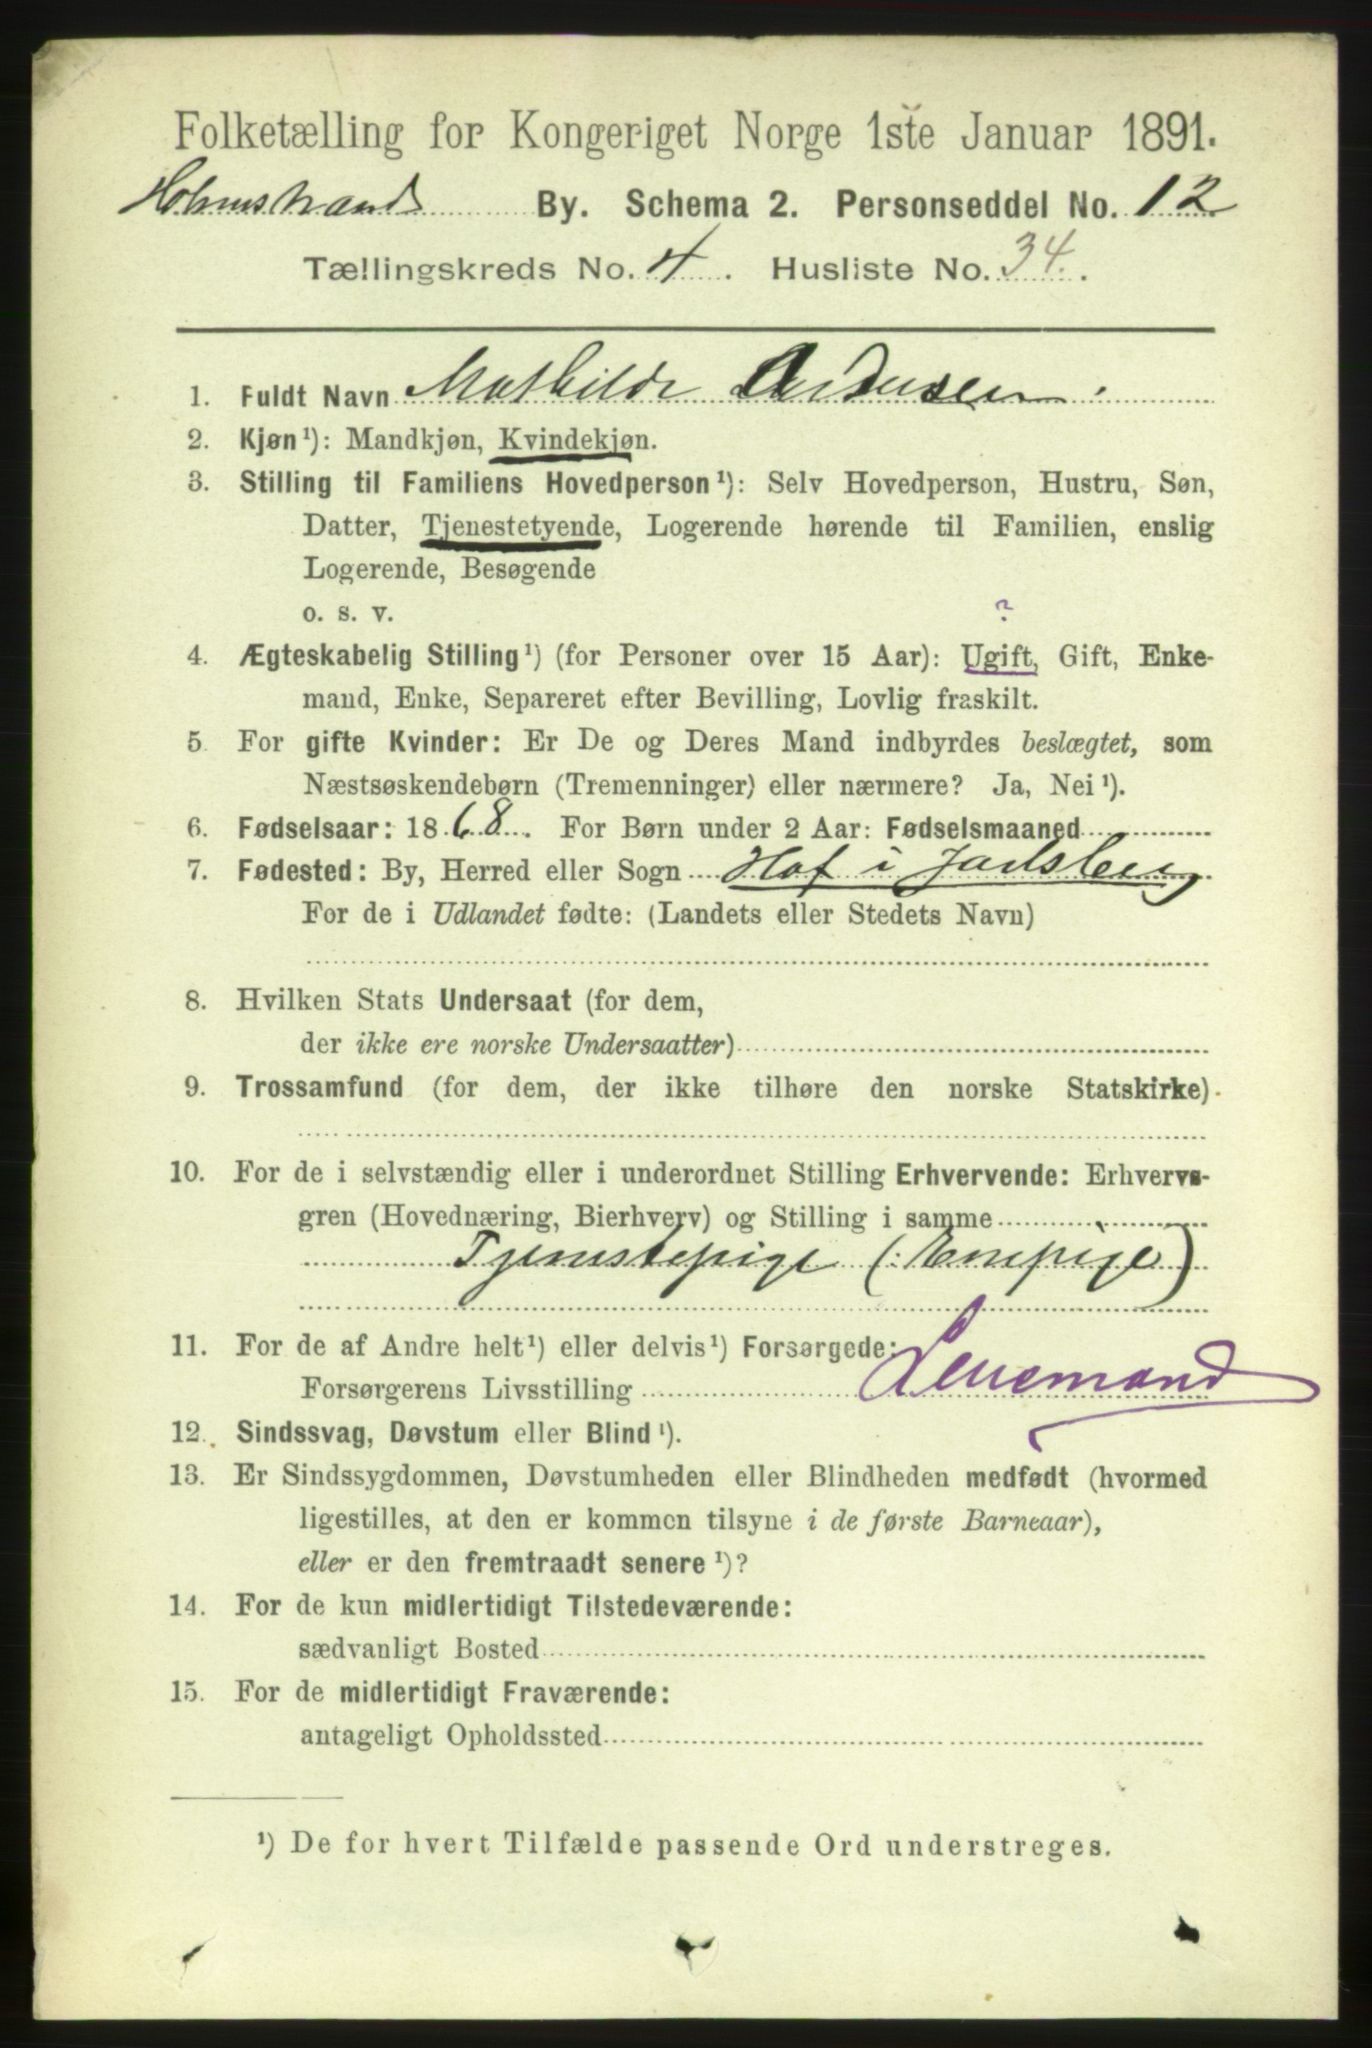 Folketælling for Kongeriget Norge 1ste Januar 1891.
Holmestrand By. Schema 2. Personseddel No. 12
Tællingskreds No. 4. Husliste No. 34.
1. Fuldt Navn Mathilde Andersen
2. Kjøn ¹): Mandkjøn, Kvindekjøn.
3. Stilling til Familiens Hovedperson ¹): Selv Hovedperson, Hustru, Søn,
Datter, Tjenestetyende, Logerende hørende til Familien, enslig
Logerende, Besøgende
o. s. v.
?
4. Ægteskabelig Stilling ¹) (for Personer over 15 Aar): Ugift, Gift, Enke-
mand, Enke, Separeret efter Bevilling, Lovlig fraskilt.
5 For gifte Kvinder: Er De og Deres Mand indbyrdes beslægtet, som
Næstsøskendebørn (Tremenninger) eller nærmere? Ja, Nei ¹).
6. Fødselsaar: 1868. For Børn under 2 Aar: Fødselsmaaned
7. Fødested: By, Herred eller Sogn Hof i Jarlsberg
For de i Udlandet fødte: (Landets eller Stedets Navn)
8. Hvilken Stats Undersaat (for dem,
der ikke ere norske Undersaatter)
9. Trossamfund (for dem, der ikke tilhøre den norske Statskirke)
10. For de i selvstændig eller i underordnet Stilling Erhvervende: Erhvervs-
gren (Hovednæring, Bierhverv) og Stilling i samme
Tjenestepige (: Enepige)
11. For de af Andre helt ¹) eller delvis ¹) Forsørgede:
Forsørgerens Livsstilling Lensmand
12. Sindssvag, Døvstum eller Blind ¹).
13. Er Sindssygdommen, Døvstumheden eller Blindheden medfødt (hvormed
ligestilles, at den er kommen tilsyne i de første Barneaar),
eller er den fremtraadt senere ¹)?
14. For de kun midlertidigt Tilstedeværende:
sædvanligt Bosted
15. For de midlertidigt Fraværende:
antageligt Opholdssted
¹) De for hvert Tilfælde passende Ord understreges.